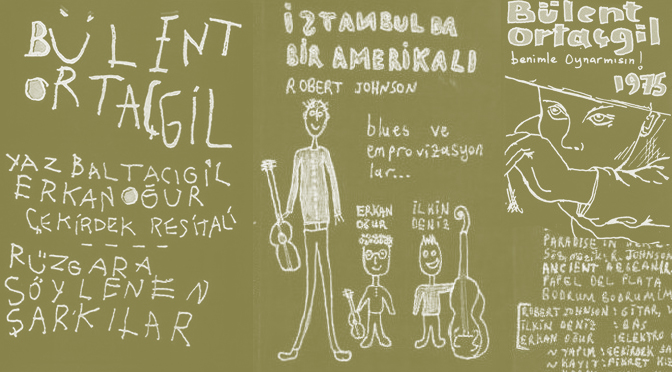 BÜLENT
ORTAÇGİL
YAZ BALTACIGİL
ERKAN OĞUR
ÇEKİRDEK RESİTALİ
RÜZGARA
SÖYLENEN
ŞARKILAR
İSTANBUL DA
BİR AMERİKALI
ROBERT JOHNSON
blues ve
emprovizasyon
lar...
ERKAN
OĞUR
İLKİN
DENİZ
Bülent
ortaçgil
benimle Oynarmısın!
1975
PARADISE IN
Söz, müzik: R. JOHNSON
ANCIENT AEGEANIR
PAPEL DEL PLATA
BODRUM BODRUMIM
ROBERT JOHNSON: GİTAR, V
İLKİN DENİZ : BAS
ERKAN OĞUR : ELEKTRO
~ YAPIM : ÇEKİRDEK SA
~ KAYIT : FİKRET KIZ